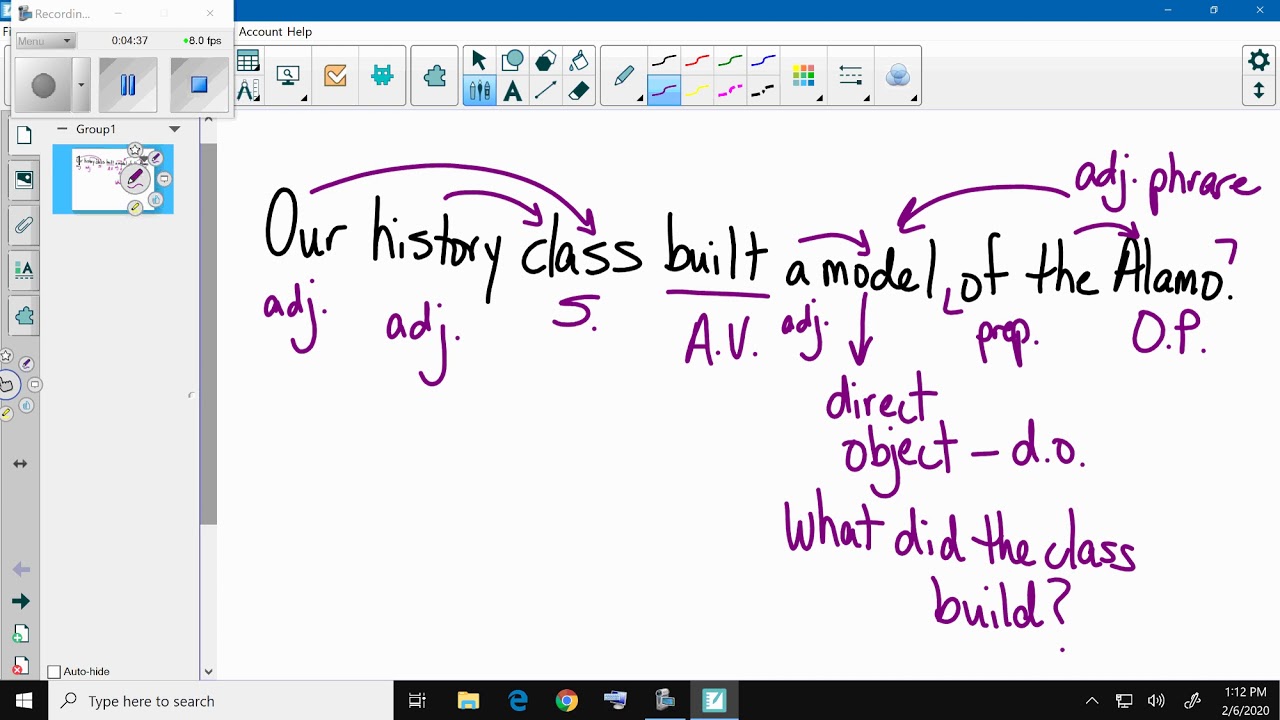 Recordin...
Menu
0:04:37
8.0 fps
Account Help
Group1
adj. phrase
Our history class built a model of the Alamo.
adj. adj. S. A.V. adj. prep. O.P.
direct
object - d.o.
What did the class
build?
Auto-hide
Type here to search
1:12 PM
2/6/2020